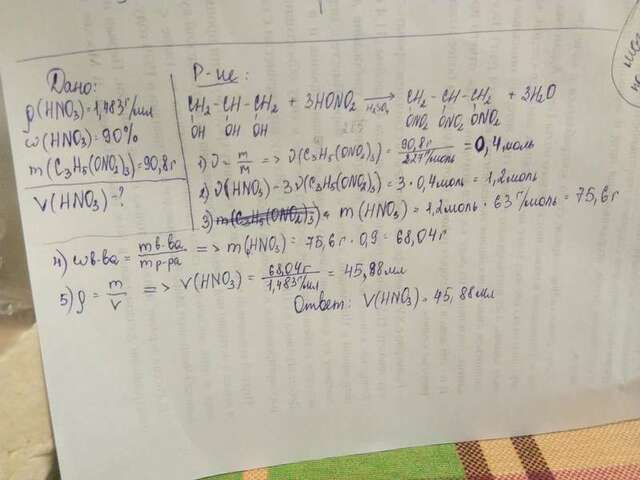 Дано:
ρ(HNO₃)=1,483г/мл
ω(HNO₃)=90%
m(C₃H₅(ONO₂)₃)=90,8г
V(HNO₃)=?
Р-ие:
CH₂-CH-CH₂ + 3HONO₂ → CH₂-CH-CH₂ + 3H₂O
H₂SO₄
OH OH OH ONO₂ ONO₂ ONO₂
1) ν = m/M => ν(C₃H₅(ONO₂)₃) = 90,8г/227г/моль = 0,4моль
2) ν(HNO₃)-3ν(C₃H₅(ONO₂)₃) = 3·0,4моль = 1,2моль
3) m(C₃H₅(ONO₂)₃) m(HNO₃) = 1,2моль·63г/моль = 75,6г
4) ωв-ва = mв-ва/mр-ра => m(HNO₃) = 75,6г·0,9 = 68,04г
5) ρ = m/V => V(HNO₃) = 68,04г/1,483г/мл = 45,88мл
Ответ: V(HNO₃) = 45,88мл